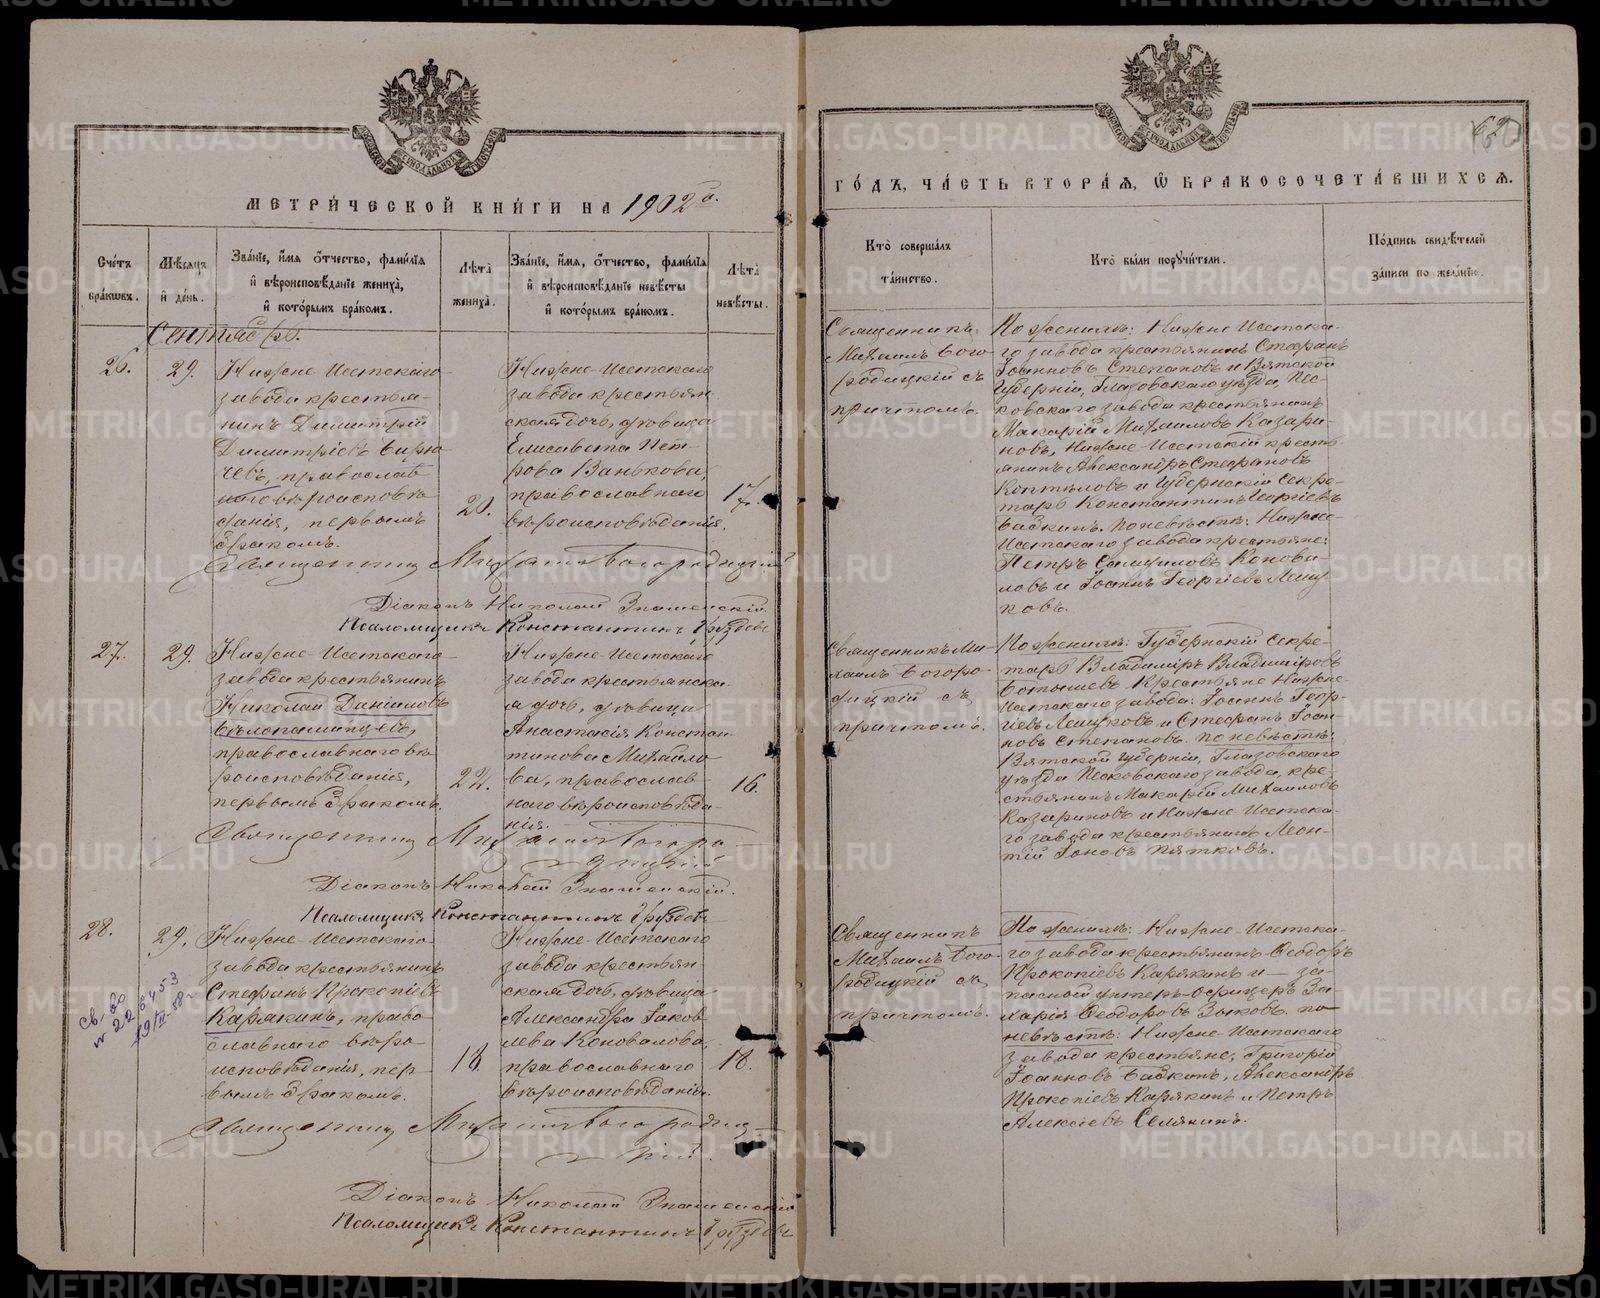 МЕТРИ́ЧЕСКОЙ КНИ́ГИ НА 1902й.
Сче́тъ бра́ковъ.
Мѣ́сяцъ и҆ де́нь.
Зва́нїе, и҆́мя о҆́тчество, фами́лїя и҆ вѣроисповѣ́данїе жениха̀, и҆ кото́рымъ бра́комъ.
Лѣ́та жениха̀.
Зва́нїе, и҆́мя, о҆́тчество, фами́лїя и҆ вѣроисповѣ́данїе невѣ́сты и҆ кото́рымъ бра́комъ.
Лѣ́та невѣ́сты.
Сентябрь.
26.
29.
Нижне-Исетскаго
завода крестья-
нинъ Димитрій
Димитріевъ Бирю-
чевъ, православ-
наго вѣроисповѣ-
данія, первымъ
бракомъ.
20.
Нижне-Исетскаго
завода крестьян-
ская дочь, дѣвица
Елисавета Пет-
рова Ванькова,
православнаго
вѣроисповѣданія.
17.
Священникъ Михаилъ Богородицкій
Діаконъ Николай Знаменскій
Псаломщикъ Константинъ Груздевъ
27.
29.
Нижне-Исетскаго
завода крестьянинъ
Николай Даніиловъ
Бѣлопашинцевъ,
православнаго вѣ-
роисповѣданія,
первымъ бракомъ.
22.
Нижне-Исетскаго
завода крестьянска-
я дочь, дѣвица
Анастасія Констан-
тинова Михайло-
ва, православ-
наго вѣроисповѣда-
нія.
16.
Священникъ Михаилъ Богоро-
дицкій
Діаконъ Николай Знаменскій.
Псаломщикъ Константинъ Груздевъ
28.
29.
Св-во
№ 226453
Нижне-Исетскаго
завода крестьянинъ
Стефанъ Прокопіевъ
Карякинъ, право-
славнаго вѣро-
исповѣданія, пер-
вымъ бракомъ.
18.
Нижне-Исетскаго
завода крестьян-
ская дочь, дѣвица
Александра Іаков-
лева Коновалова,
православнаго
вѣроисповѣданія.
18.
Священникъ Михаилъ Богородиц-
кій.
Діаконъ Николай Знаменскій
Псаломщикъ Константинъ Груздевъ
ГО́ДЪ, ЧА́СТЬ ВТОРА́Я, Ѡ҆ БРАКОСОЧЕТА́ВШИХСЯ.
Кто̀ соверша́лъ та́инство.
Кто̀ бы́ли поручи́тели.
По́дпись свидѣ́телей за́писи по жела́нїю.
Священникъ
Михаилъ Бого-
родицкій съ
причтомъ.
По женихѣ: Нижне-Исетска-
го завода крестьянинъ Стефанъ
Іоанновъ Степановъ и Вятской
губерніи, Глазовскаго уѣзда, Пес-
ковскаго завода крестьянинъ
Макарій Михаиловъ Казари-
новъ, Нижне-Исетскій кресть-
янинъ Александръ Стефановъ
Коптѣловъ и Губернскій Секре-
тарь Константинъ Георгіевъ
Бабкинъ. По невѣстѣ: Нижне-
Исетскаго завода крестьяне:
Петръ Самуиловъ Конова-
ловъ и Іоаннъ Георгіевъ Лещу-
ковъ.
Священникъ Ми-
хаилъ Богоро-
дицкій съ
причтомъ.
По женихѣ: Губернскій Секре-
тарь Владиміръ Владиміровъ
Ботышевъ. Крестьяне Нижне-
Исетскаго завода: Іоаннъ Геор-
гіевъ Лещуковъ и Стефанъ Іоан-
новъ Степановъ. По невѣстѣ:
Вятской губерніи, Глазовскаго
уѣзда Песковскаго завода, кре-
стьянинъ Макарій Михаиловъ
Казариновъ и Нижне-Исетска-
го завода крестьянинъ Леон-
тій Іоновъ Пятковъ.
Священникъ
Михаилъ Бого-
родицкій съ
причтомъ.
По женихѣ: Нижне-Исетска-
го завода крестьянинъ Ѳеодоръ
Прокопіевъ Карякинъ и — за-
пасный унтеръ-офицеръ За-
харія Ѳеодоровъ Зыковъ. По
невѣстѣ: Нижне-Исетскаго
завода крестьяне, Григорій
Іоанновъ Бабкинъ, Александръ
Прокопіевъ Карякинъ и Петръ
Алексіевъ Семянинъ.
METRIKI.GASO-URAL.RU